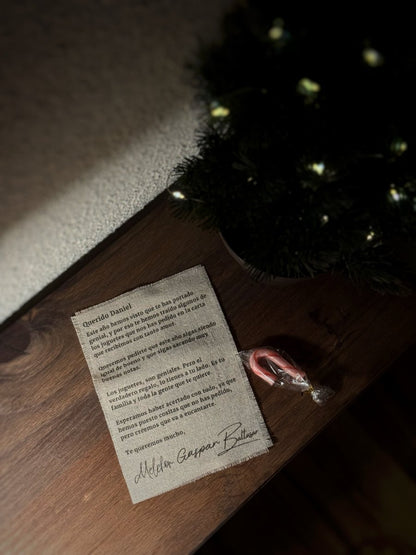 Querido Daniel
Este año hemos visto que te has portado
genial, y por eso te hemos traído algunos de
los juguetes que nos has pedido en la carta
que recibimos con tanto amor.
Queremos pedirte que este año sigas siendo
igual de bueno y que sigas sacando muy
buenas notas.
Los juguetes, son geniales. Pero el
verdadero regalo, lo tienes a tu lado. Es tu
familia y toda la gente que te quiere.
Esperamos haber acertado con todo, ya que
hemos puesto cositas que no has pedido,
pero creemos que va a encantarte.
Te queremos mucho.
Melchor Gaspar Baltasar